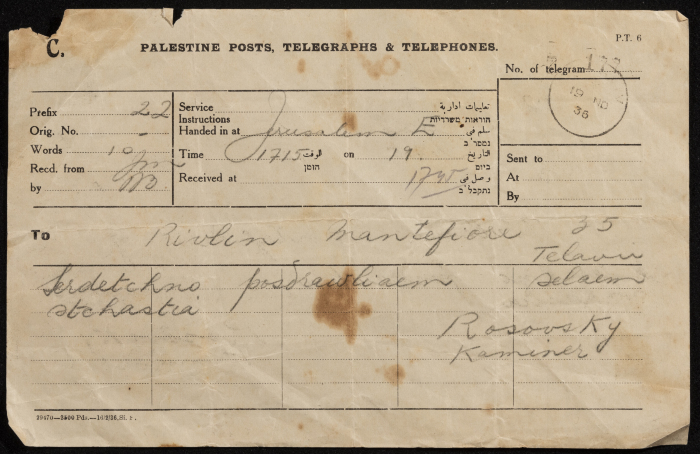 P.T. 6
C. PALESTINE POSTS, TELEGRAPHS & TELEPHONES.
No. of telegram 172
19 NO
36
Prefix 22
Orig. No. -
Words 10
Recd. from
by
Service تعليمات ادارية
Instructions הוראות משרדיות
Handed in at Jerusalem E سلم في
נמסר ב
Time 1715 الوقت on 19. التاريخ
הזמן ביום
Received at 1745 وصل في
נתקבל ב
Sent to
At
By
To Rivlin Mantefiore 35
Telaviv
Serdetchno posdrawliaem selaem
stchastia
Rosovsky
Kaminer